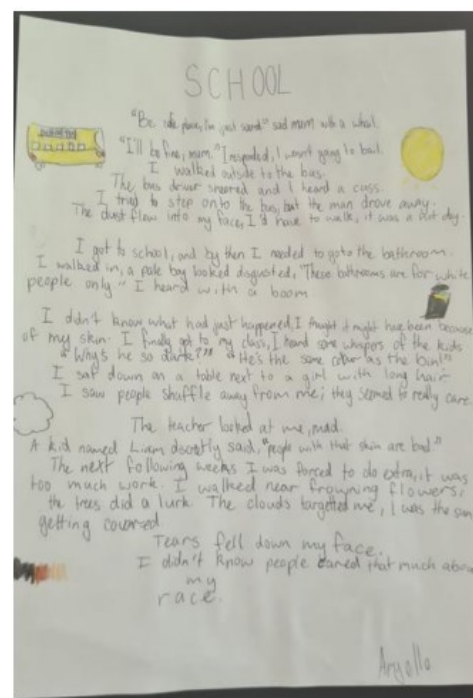 SCHOOL
"Be safe please, I'm just scared" said mum with a wail.
"I'll be fine, mum." I responded, I wasn't going to bail.
I walked outside to the bus.
The bus driver sneered and I heard a cuss.
I tried to step onto the bus, but the man drove away.
The dust flew into my face, I'd have to walk, it was a hot day.
I got to school, and by then I needed to go to the bathroom.
I walked in, a pale boy looked disgusted, "These bathrooms are for white
people only" I heard with a boom
I didn't know what had just happened, I thought it might have been because
of my skin. I finally got to my class, I heard some whispers of the kids
"Why's he so dark?" "He's the same colour as the bin!"
I sat down on a table next to a girl with long hair
I saw people shuffle away from me; they seemed to really care
The teacher looked at me, mad.
A kid named Liam said, "people with that skin are bad"
The next following weeks I was forced to do extra, it was
too much work. I walked near frowning flowers,
the trees did a lurk. The clouds targetted me, I was the sun
getting covered
Tears fell down my face.
I didn't know people cared that much about
my
race.